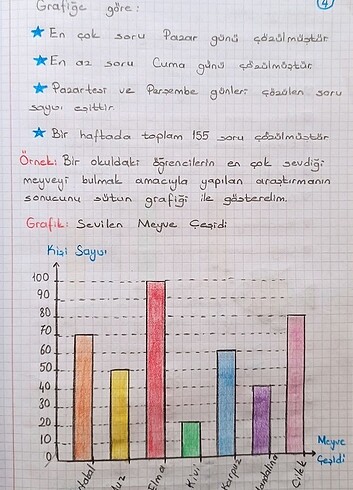 Grafiğe göre:
4
En çok soru Pazar günü çözülmüştür
En az soru Cuma günü çözülmüştür
Pazartesi ve Perşembe günleri çözülen soru
sayısı eşittir.
Bir haftada toplam 155 soru çözülmüştür
Örnek: Bir okuldaki öğrencilerin en çok sevdiği
meyveyi bulmak amacıyla yapılan araştırmanın
sonucunu sütun grafiği ile gösterelim.
Grafik: Sevilen Meyve Çeşidi
Kişi Sayısı
100
90
80
70
60
50
40
30
20
10
0
Elma
Kivi
Karpuz
Çilek
Meyve
Çeşidi